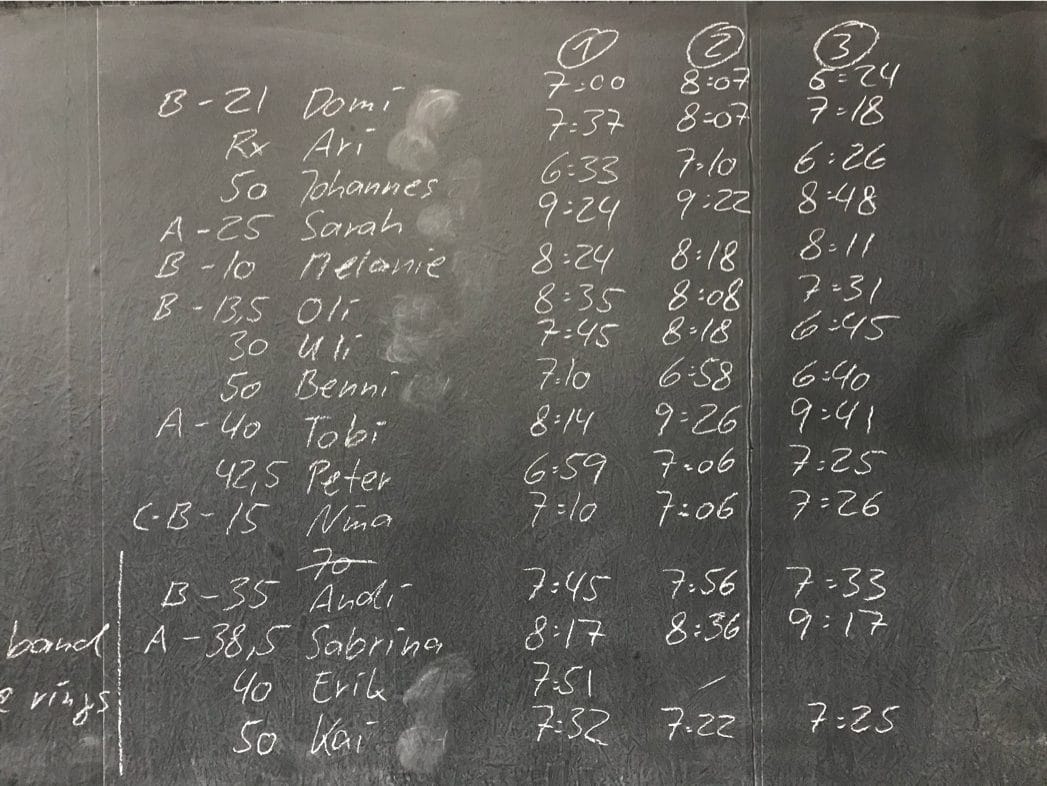 1 2 3
B-21 Domi 7:00 8:07 6:24
Rx Ari 7:37 8:07 7:18
50 Johannes 6:33 7:10 6:26
A-25 Sarah 9:24 9:22 8:48
B-10 Melanie 8:24 8:18 8:11
B-13,5 Oli 8:35 8:08 7:31
30 Uli 7:45 8:18 6:45
50 Benni 7:10 6:58 6:40
A-40 Tobi 8:14 9:26 9:41
42,5 Peter 6:59 7:06 7:25
C-B-15 Nina 7:10 7:06 7:26
70
B-35 Andi 7:45 7:56 7:33
band A-38,5 Sabrina 8:17 8:36 9:17
rings 40 Erik 7:51 /
50 Kai 7:32 7:22 7:25